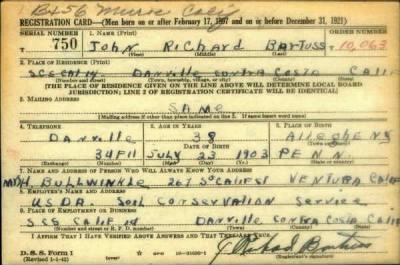 REGISTRATION CARD—(Men born on or after February 17, 1897 and on or before December 31, 1921)
SERIAL NUMBER 1. NAME (Print) ORDER NUMBER
750 John Richard Bartuss 10,063
(First) (Middle) (Last)
2. PLACE OF RESIDENCE (Print)
Danville Contra Costa Calif
(Number and street) (Town, township, village, or city) (County) (State)
[THE PLACE OF RESIDENCE GIVEN ON THE LINE ABOVE WILL DETERMINE LOCAL BOARD
JURISDICTION; LINE 2 OF REGISTRATION CERTIFICATE WILL BE IDENTICAL]
3. MAILING ADDRESS
SAME
[Mailing address if other than place indicated on line 2. If same insert word same]
4. TELEPHONE 5. AGE IN YEARS 6. PLACE OF BIRTH
Danville 38 Allegheny
DATE OF BIRTH (Town or county)
34F11 JULY 23 1903 PENN
(Exchange) (Number) (Mo.) (Day) (Yr.) (State or country)
7. NAME AND ADDRESS OF PERSON WHO WILL ALWAYS KNOW YOUR ADDRESS
BULLWINKLE 267 VENTURA CALIF
8. EMPLOYER'S NAME AND ADDRESS
USDA Soil Conservation Service
9. PLACE OF EMPLOYMENT OR BUSINESS
SCS CALIF Danville Contra Costa Calif
(Number and street or R. F. D. number) (Town) (County) (State)
I AFFIRM THAT I HAVE VERIFIED ABOVE ANSWERS AND THAT THEY ARE TRUE.
D. S. S. Form 1
(Revised 1-1-42) (over)
J Richard Bartuss